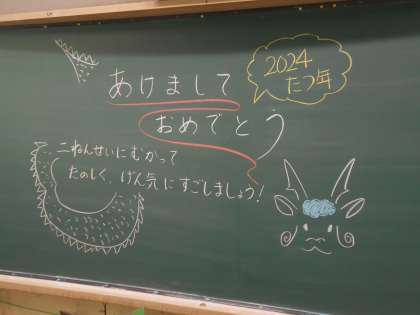 あけまして
おめでとう
2024
たつ年
二ねんせいにむかって
たのしく、げん気にすごしましょう!